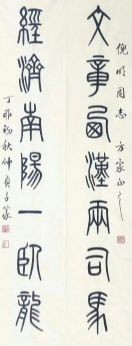 倪明同志 方家正之
文章西漢兩司馬
經濟南陽一臥龍
丁卯初秋仲貞子篆